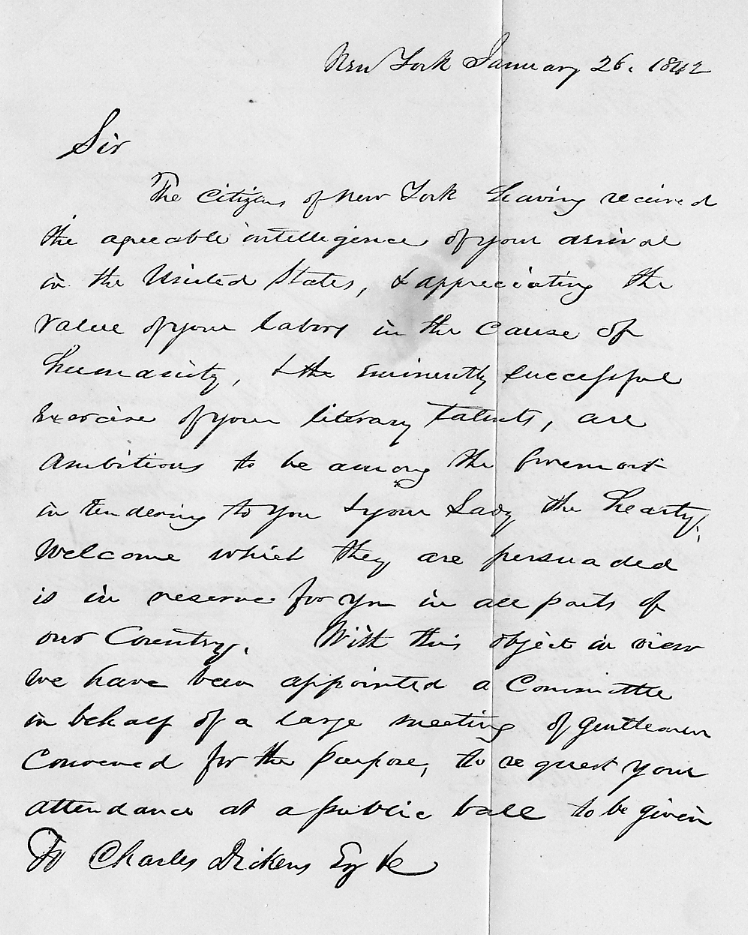 New York January 26. 1842
Sir
The Citizens of New York having received
the agreeable intelligence of your arrival
in the United States, & appreciating the
value of your labors in the cause of
humanity, & the eminently successful
exercise of your literary talents, are
ambitious to be among the foremost
in tendering to you & your Lady the hearty
Welcome which they are persuaded
is in reserve for you in all parts of
our Country. With this object in view
we have been appointed a Committee
in behalf of a large meeting of gentlemen
Convened for the purpose, to request your
attendance at a public ball to be given
To Charles Dickens Esq &c